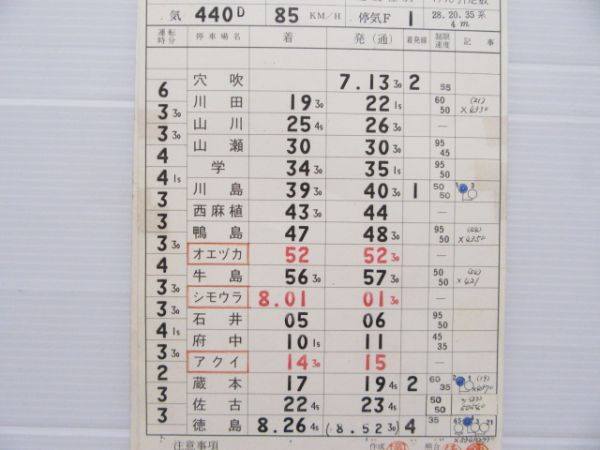 気 440D 85 KM/H 停気F 1 28.20.35系 4m
運転時分 停車場名 着 発(通) 着発線 制限速度 記事
穴吹 7.13 30 2 55
6
川田 19 30 22 15 60 50 (21)
3 30
山川 25 45 26 30 —
3 30
山瀬 30 30 30 95 45
4
学 34 30 35 15 95 50
4 15
川島 39 30 40 30 1 50 50
3
西麻植 43 30 44 —
3
鴨島 47 48 30 95 50
3 30
オエヅカ 52 52 30 —
4
牛島 56 30 57 30 50 50
3 30
シモウラ 8.01 01 30 —
3 30
石井 05 06 95 50
4 15
府中 10 15 11 45 35
3 30
アクイ 14 30 15 —
2
蔵本 17 19 45 2 60 35
3
佐古 22 45 23 45 50 50
3
徳島 8.26 45 (8.52 30) 4 35
注意事項 作成 照合